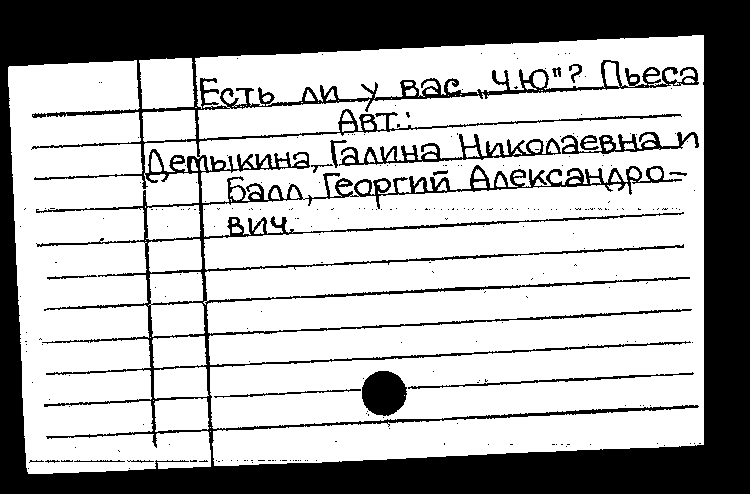 Есть ли у вас „Ч.Ю"? Пьеса
Авт.:
Демыкина, Галина Николаевна и
Балл, Георгий Александро=
вич.